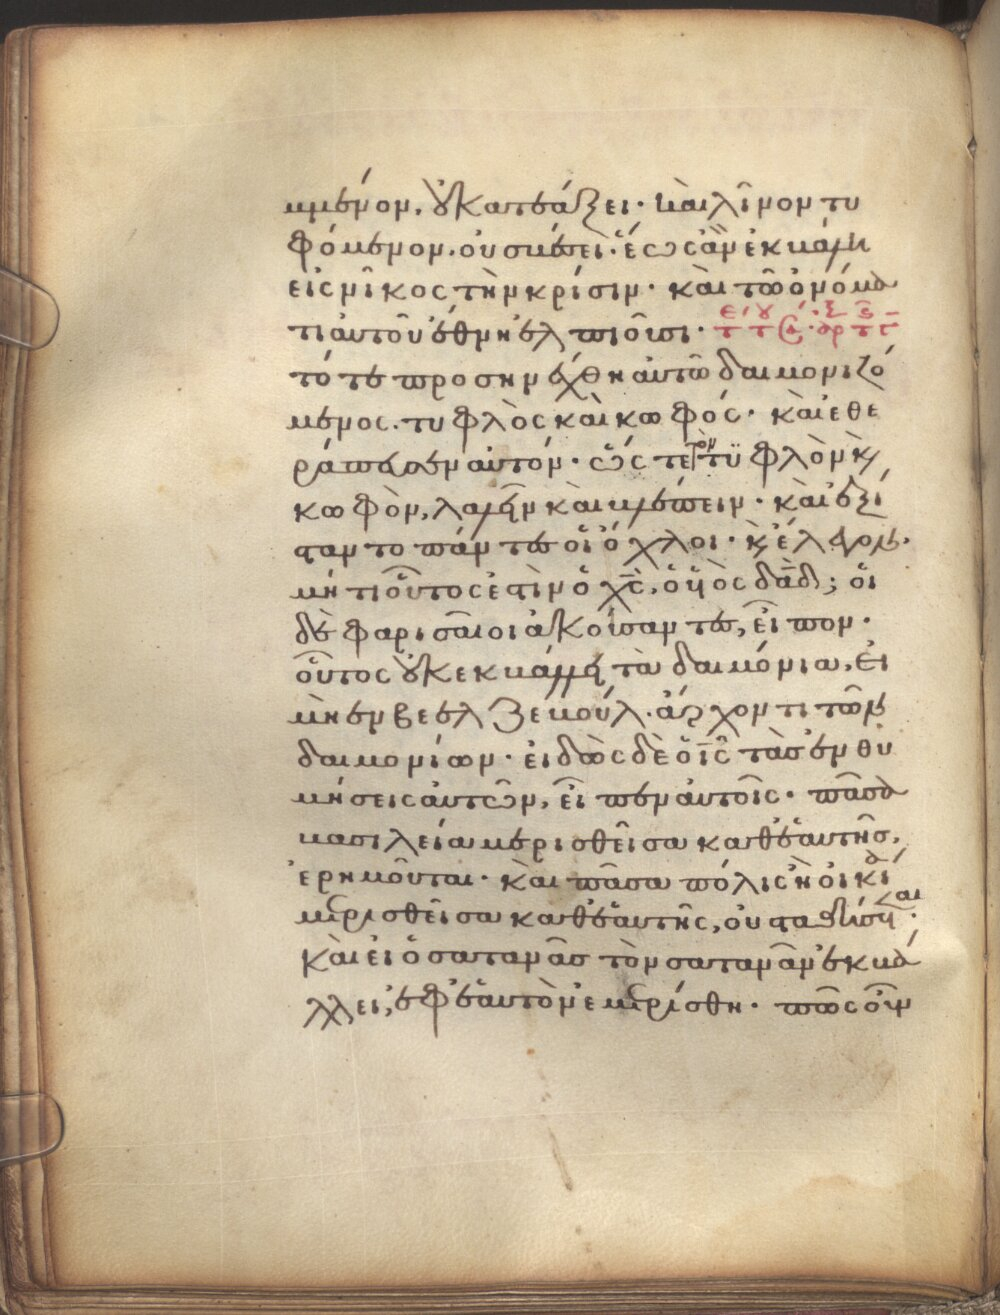 μμένον, οὐ κατεάξει· καὶ λῖνον τυ
φόμενον. οὐ σβέσει· ἕως ἂν ἐκβάλη
εἰς νῖκος τὴν κρίσιν· καὶ τῶ ὀνόμα
τι αὐτοῦ ἔθνη ἐλπιοῦσι·
τότε προσηνέχθη αὐτῶ δαιμονιζό
μενος. τυφλὸς καὶ κωφός· καὶ ἐθε
ράπευσεν αὐτόν· ὥς τε τὸν τυφλὸν κ
κωφὸν, λαλεῖν καὶ βλέπειν· καὶ ἐξί
σταντο πάντες οἱ ὄχλοι· κ ἔλεγον·
μήτι οὗτος ἐστὶν ὁ χς, ὁ υἱὸς δαδ; οἱ
δὲ φαρισαῖοι ἀκούσαντες, εἶπον·
οὗτος οὐκ ἐκβάλλει τὰ δαιμόνια, εἰ
μὴ ἐν βεελζεβούλ. ἄρχοντι τῶν
δαιμονίων· εἰδὼς δὲ ὁ ις τὰς ἐνθυ
μήσεις αὐτῶν, εἶπεν αὐτοῖς· πᾶσα
βασιλεία μερισθεῖσα καθ' ἑαυτῆς,
ἐρημοῦται· καὶ πᾶσα πόλις ἢ οἰκία
μερισθεῖσα καθ' ἑαυτῆς, οὐ σταθήσεται·
καὶ εἰ ὁ σατανᾶς τὸν σατανᾶν ἐκβά
λλει, ἐφ' ἑαυτὸν ἐμερίσθη· πῶς οὖν